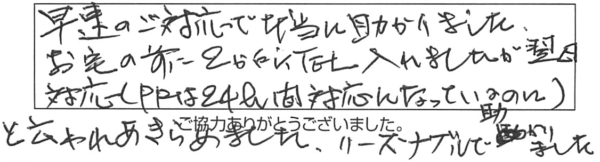 早速のご対応で本当に助かりました、
お宅の前に2台ほどTEL入れましたが翌日
対応(HPは24h間対応になっているのに)
と云われあきらめました、リーズナブルで助かりました
ご協力ありがとうございました。